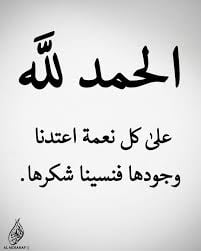 الحمد لله
على كل نعمة اعتدنا
وجودها فنسينا شكرها.